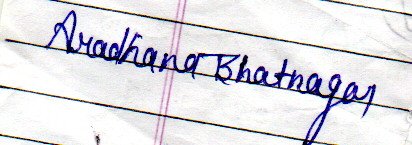 Aradhana Bhatnagar